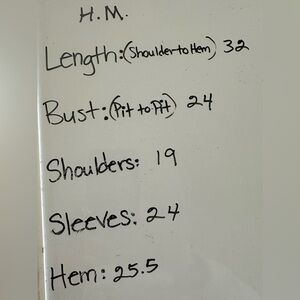 H.M.
Length:(Shoulder to Hem) 32
Bust:(Pit to Pit) 24
Shoulders: 19
Sleeves: 24
Hem: 25.5